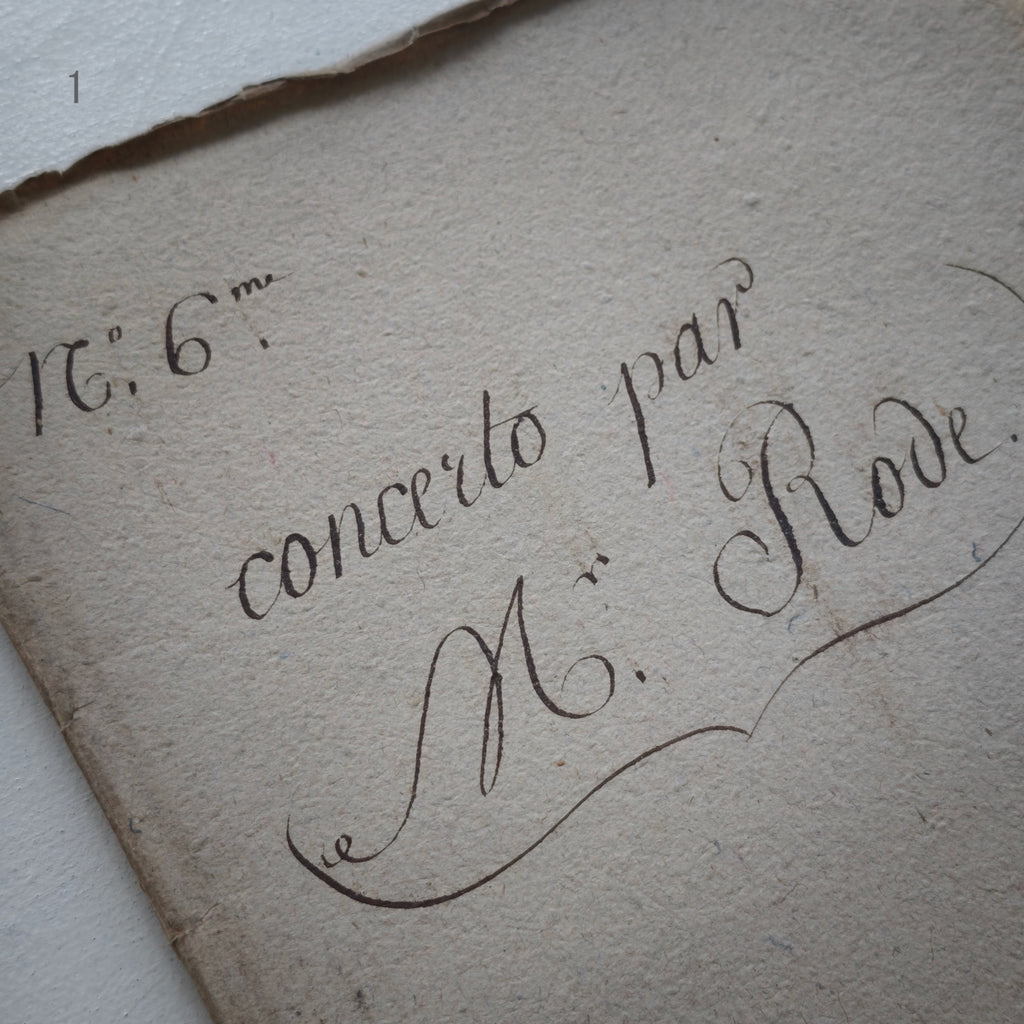 1
N.º 6.me
concerto par
M.r Rode.